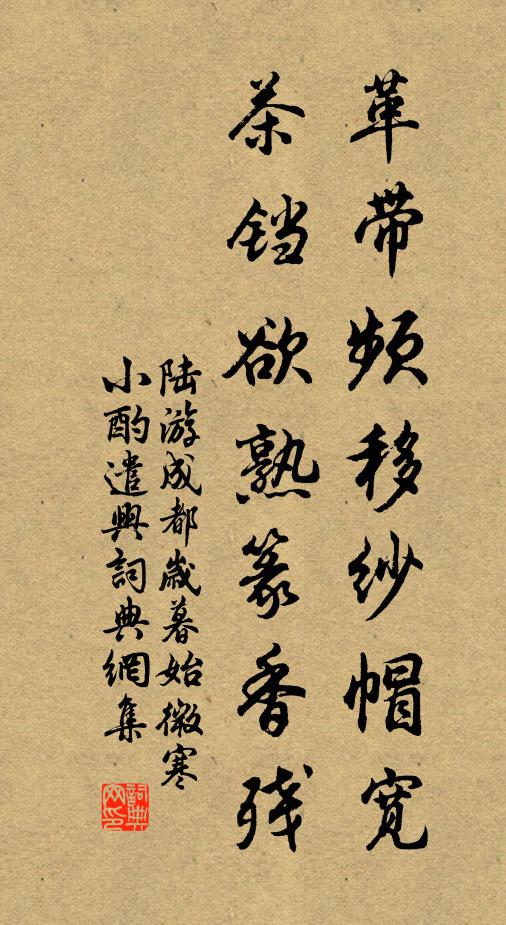 革带频移纱帽宽
茶铛欲熟篆香残
陆游成都歲暮始微寒
小酌遣興詞典網集
詞典
网印